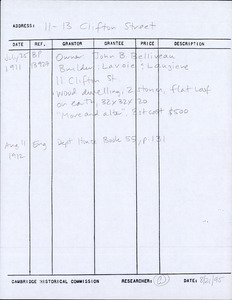 ADDRESS: 11-13 Clifton Street
DATE REF. GRANTOR GRANTEE PRICE DESCRIPTION
July 25 BP Owner John B Belliveau
1911 Builder: Lavoie
11 Clifton St
Wood dwelling, 2 stories, flat roof
on earth, 32x32x20
"Move and alter". Est cost $500
Aug 11 Eng Dept House Book 55, p. 131
1912
CAMBRIDGE HISTORICAL COMMISSION RESEARCHER: DATE: